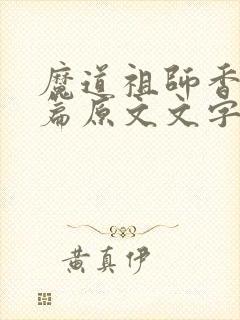 魔道祖師香
篇原文文字
黄真伊